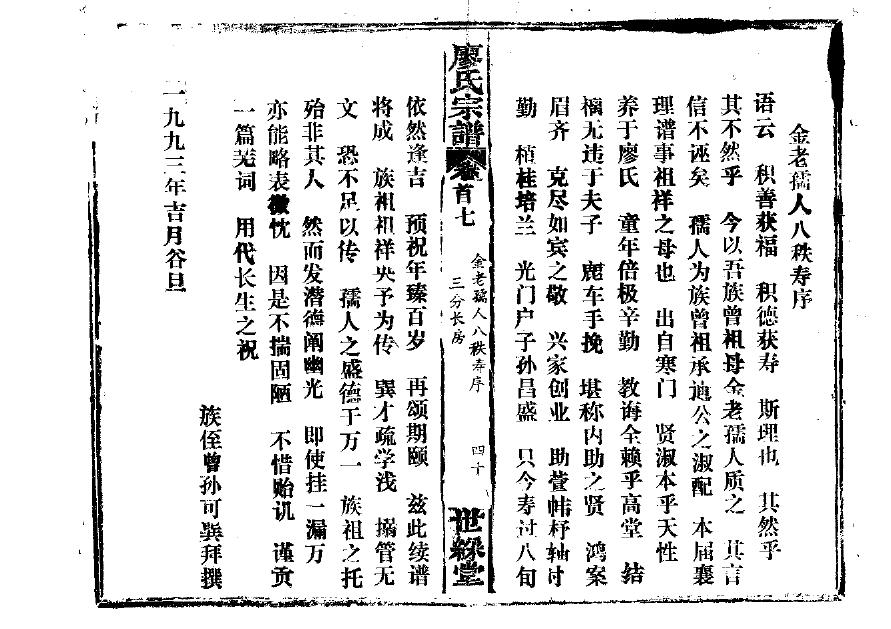 金老孺人八秩寿序
语云 积善获福 积德获寿 斯理也 其然乎
其不然乎 今以吾族曾祖母金老孺人质之 其言
信不诬矣 孺人为族曾祖承迪公之淑配 本届襄
理谱事祖祥之母也 出自寒门 贤淑本乎天性
养于廖氏 童年倍极辛勤 教诲全赖乎高堂 结
榈无违于夫子 鹿车手挽 堪称内助之贤 鸿案
眉齐 克尽如宾之敬 兴家创业 助萱帏杼轴讨
勤 植桂培兰 光门户子孙昌盛 只今寿过八旬
廖氏宗譜 卷首七
金老孺人八秩寿序 四十
三分长房
世綵堂
依然逢吉 预祝年臻百岁 再颂期颐 兹此续谱
将成 族祖祖祥央予为传 巽才疏学浅 搦管无
文 恐不足以传 孺人之盛德于万一 族祖之托
殆非其人 然而发潜德阐幽光 即使挂一漏万
亦能略表微忱 因是不揣固陋 不惜贻讥 谨贡
一篇芜词 用代长生之祝
族侄曾孙可巽拜撰
一九九三年吉月谷旦